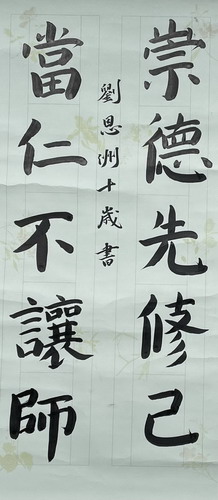 崇德先修己
當仁不讓師
劉恩洲十歲書